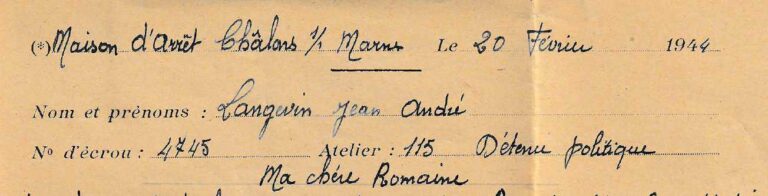 (*) Maison d'Arrêt Châlons s/ Marne Le 20 Février 1944
Nom et prénoms : Langevin Jean André
N° d'écrou : 4745 Atelier : 115 Détenu politique
Ma chère Romaine